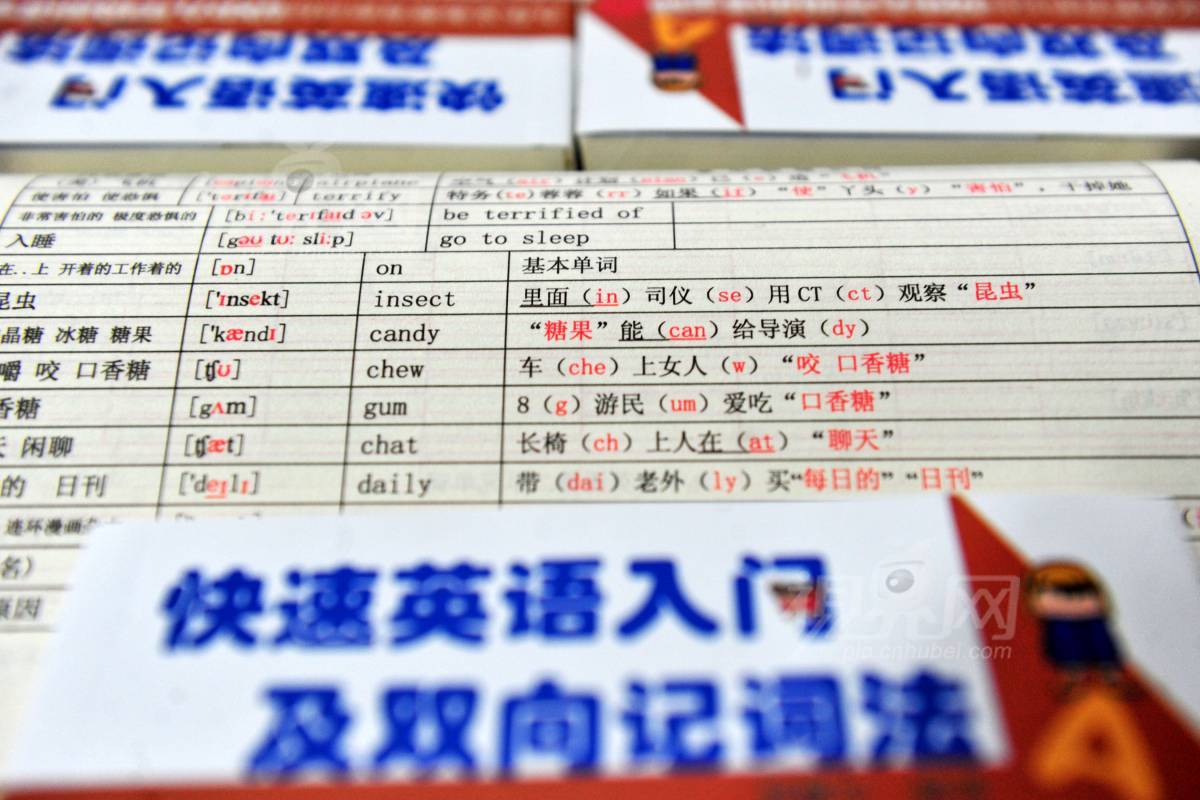 及双向记词法
快速英语入门
及双向记词法
速英语入门
airplane
使害怕 使恐惧 ['terɪfaɪ] terrify 特务(te)荐荐(rr)如果(if)“使”丫头(y)“害怕”,干掉她
非常害怕的 极度恐惧的 [bi:'terɪfaɪd əv] be terrified of
入睡 [gəʊ tʊ: sli:p] go to sleep
在..上 开着的工作着的 [ɒn] on 基本单词
昆虫 ['ɪnsekt] insect 里面(in)司仪(se)用CT(ct)观察“昆虫”
晶糖 冰糖 糖果 ['kændɪ] candy “糖果”能(can)给导演(dy)
嚼 咬 口香糖 [ʧʊ] chew 车(che)上女人(w)“咬 口香糖”
香糖 [gʌm] gum 8(g)游民(um)爱吃“口香糖”
闲聊 [ʧæt] chat 长椅(ch)上人在(at)“聊天”
的 日刊 ['deɪlɪ] daily 带(dai)老外(ly)买“每日的”“日刊”
连环漫画
名)
原因
快速英语入门
及双向记词法
A
视界网
pic.cnhubei.com